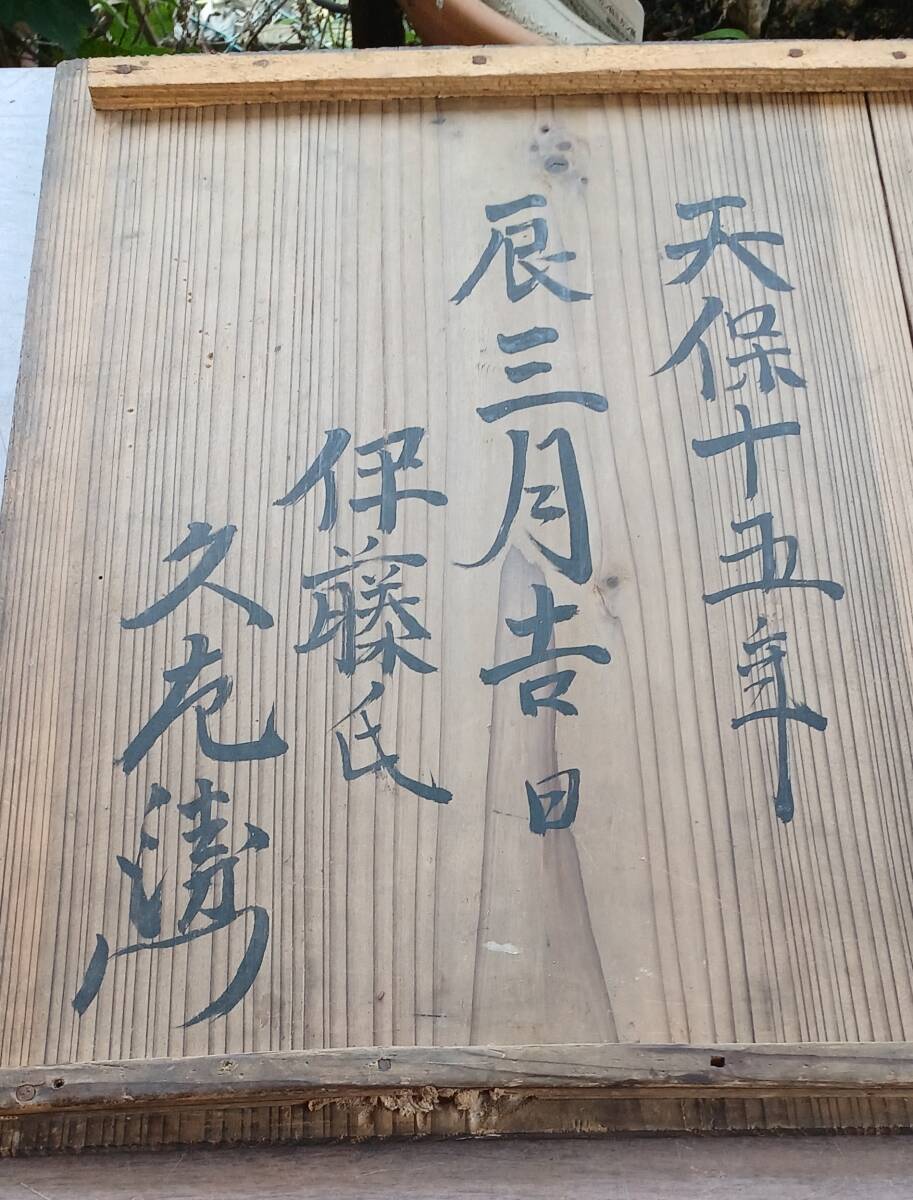 天保十五年
辰三月吉日
伊藤氏
久左衛門